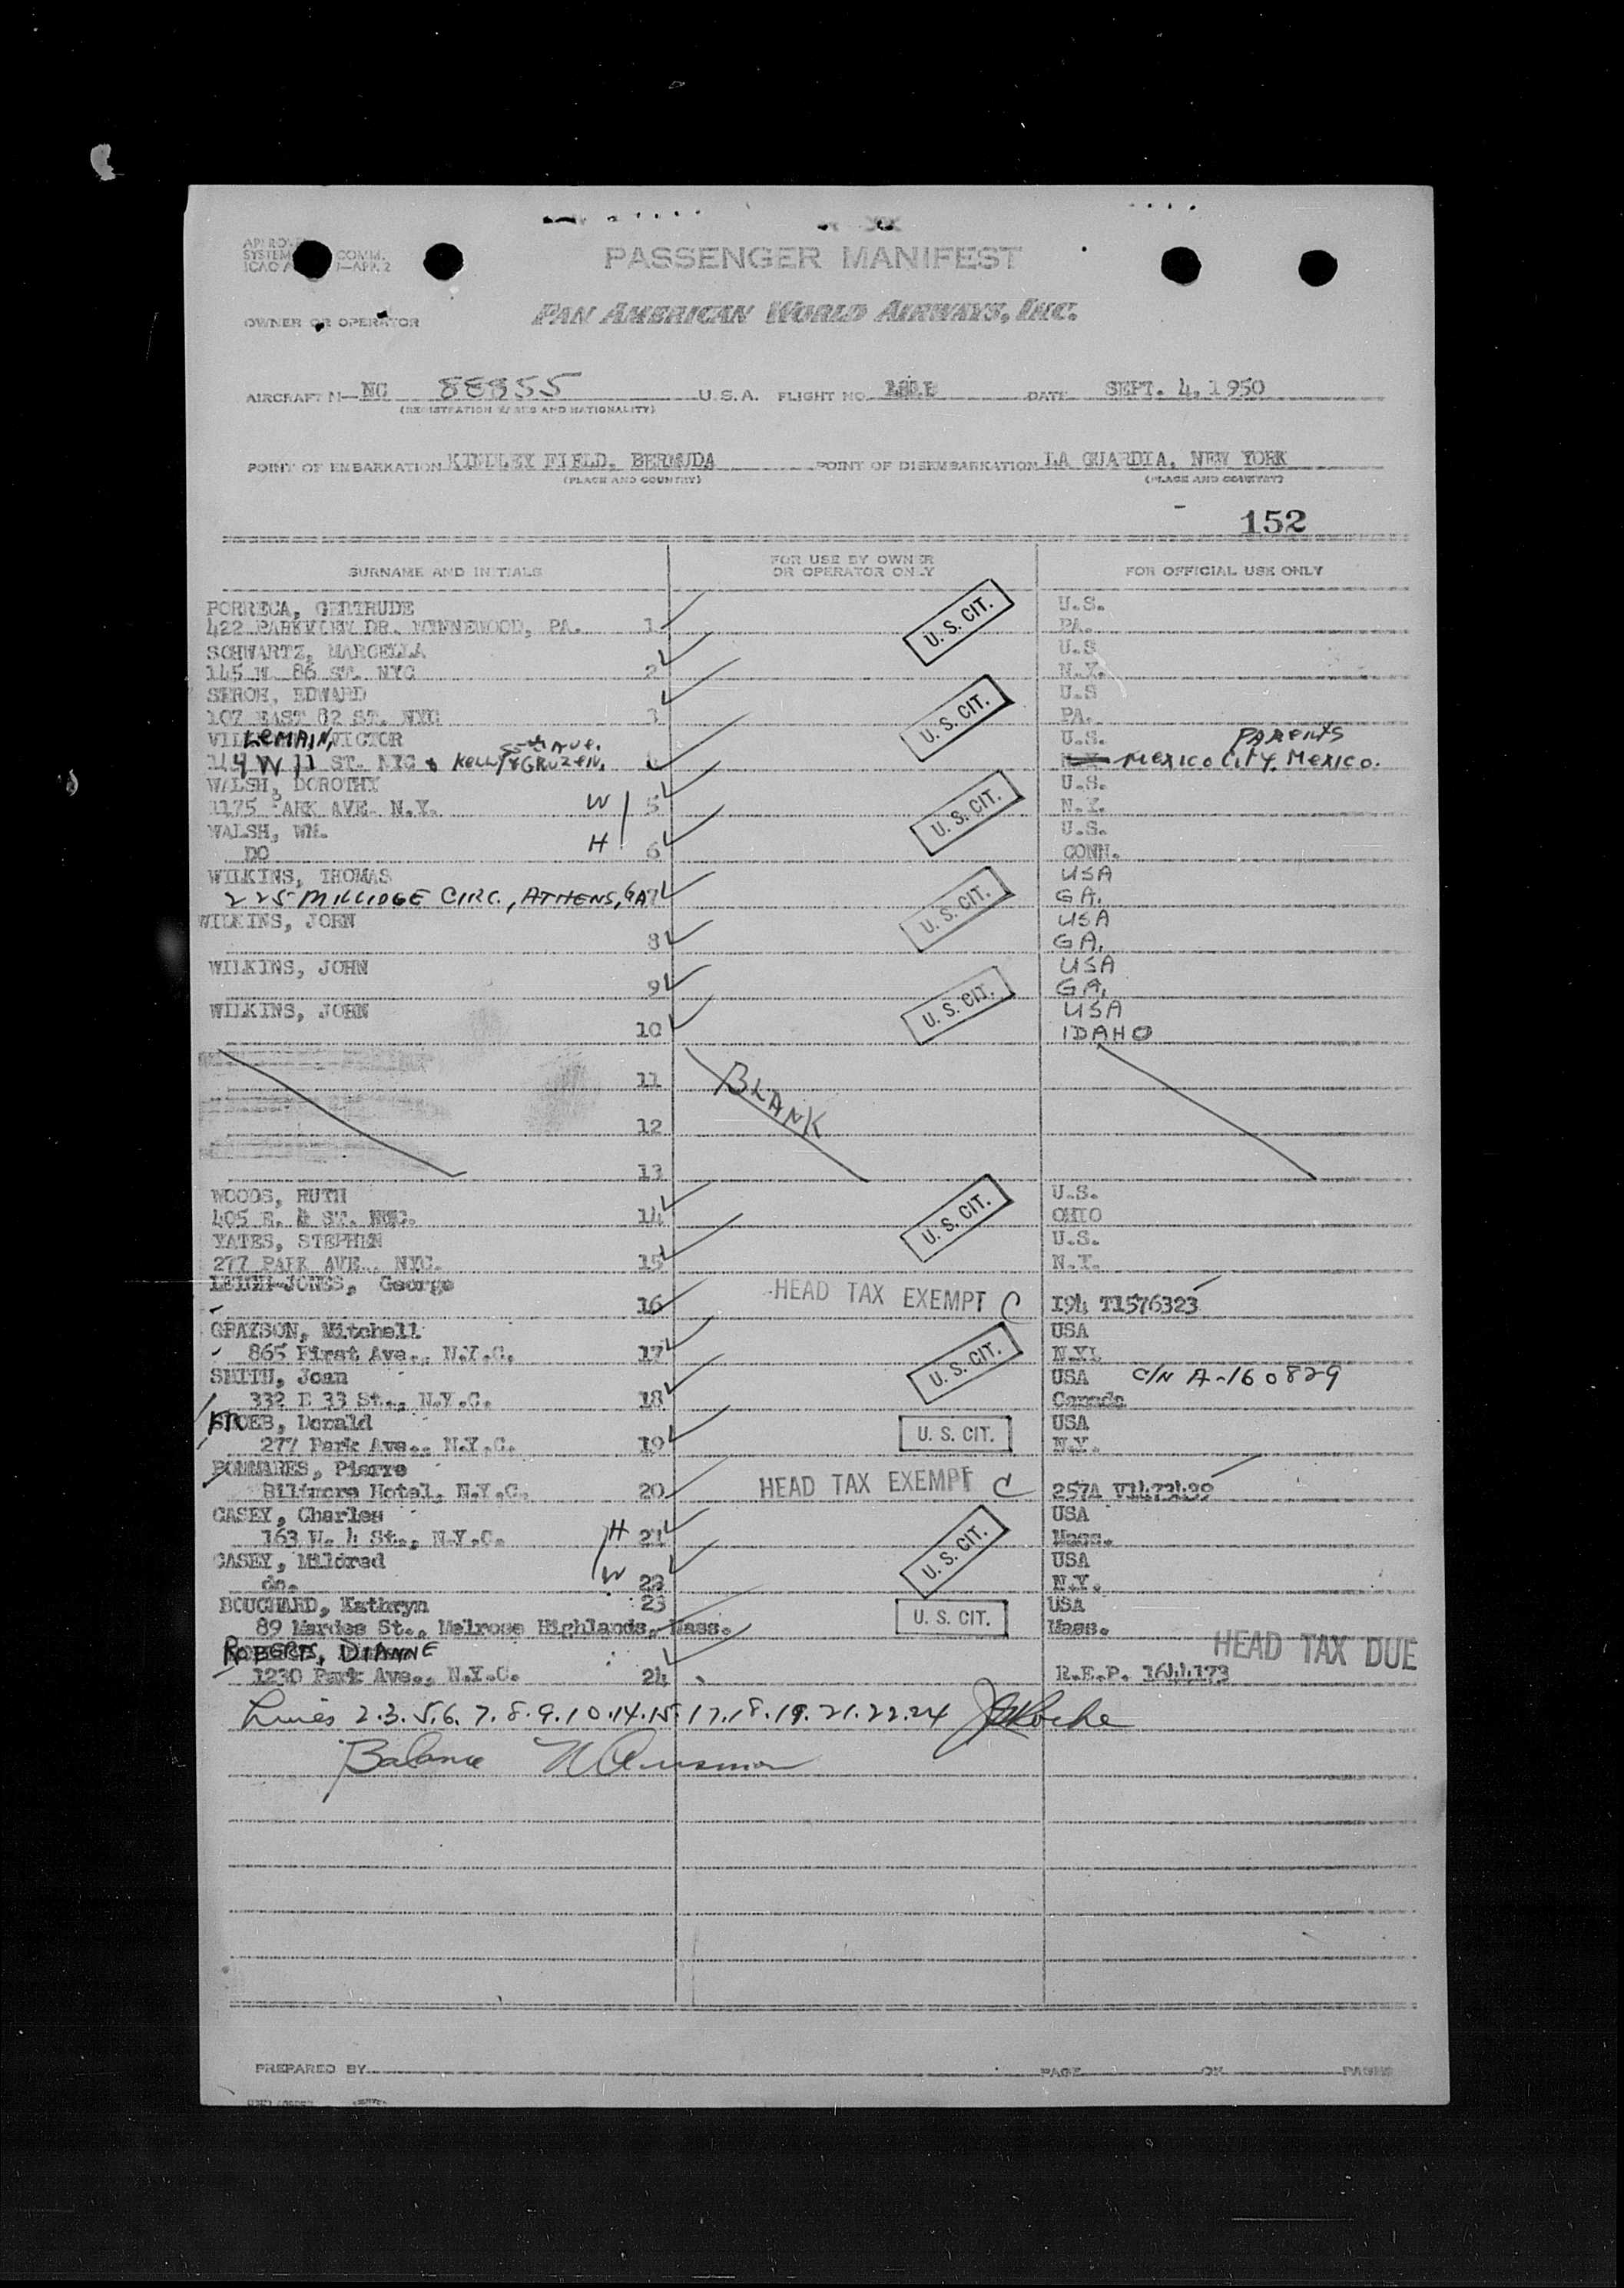 PASSENGER MANIFEST
OWNER OR OPERATOR
PAN AMERICAN WORLD AIRWAYS, INC.
AIRCRAFT N— NC 88855 U.S.A. FLIGHT NO. DATE SEPT. 4, 1950
(REGISTRATION MARKS AND NATIONALITY)
POINT OF EMBARKATION KINDLEY FIELD, BERMUDA POINT OF DISEMBARKATION LA GUARDIA, NEW YORK
(PLACE AND COUNTRY) (PLACE AND COUNTRY)
152
SURNAME AND INITIALS FOR USE BY OWNER OR OPERATOR ONLY FOR OFFICIAL USE ONLY
PORRECA, GERTRUDE U.S. CIT. U.S.
422 PARKVIEW DR. WYNNEWOOD, PA. 1 PA.
SCHWARTZ, MARCELLA U.S
145 W. 86 ST. NYC 2 N.Y.
SEROH, EDWARD U.S. CIT. U.S
107 EAST 82 ST. NYC 3 PA.
LEMAIN, VICTOR 5th AVE. U.S. PARENTS
144 W 11 ST. NYC KELLY & GRUZEN, Mexico City, Mexico.
WALSH, DOROTHY U.S. CIT. U.S.
1175 PARK AVE. N.Y. W 5 N.Y.
WALSH, WM. U.S.
DO H 6 CONN.
WILKINS, THOMAS U.S. CIT. USA
225 MILLIDGE CIRC., ATHENS, GA 7 GA.
WILKINS, JOHN USA
8 GA.
WILKINS, JOHN U.S. CIT. USA
9 GA.
WILKINS, JOHN USA
10 IDAHO
11 BLANK
12
13
WOODS, RUTH U.S. CIT. U.S.
405 E. ST. NYC. 14 OHIO
YATES, STEPHEN U.S.
277 PARK AVE. NYC. 15 N.Y.
LEIGH-JONES, George
16 HEAD TAX EXEMPT C I94 T1576323
GRAYSON, Mitchell U.S. CIT. USA
865 First Ave., N.Y.C. 17 N.Y.
SMITH, Joan USA C/N A-160829
332 E 33 St., N.Y.C. 18 Canada
Donald U.S. CIT. USA
277 Park Ave., N.Y.C. 19 N.Y.
POMMARES, Pierre
Biltmore Hotel, N.Y.C. 20 HEAD TAX EXEMPT C 257A V1473439
CASEY, Charles U.S. CIT. USA
163 W. 4 St., N.Y.C. H 21 Mass.
CASEY, Mildred USA
do. W 22 N.Y.
BOUCHARD, Kathryn 23 U.S. CIT. USA
89 St., Melrose Highlands, Mass. Mass.
ROBERTS, DIANNE HEAD TAX DUE
1230 Park Ave., N.Y.C. 24 R.E.P. 1644173
Lines 2.3.5.6.7.8.9.10.14.15.17.18.19.21.22.24
Balance
PREPARED BY PAGE OF PAGES